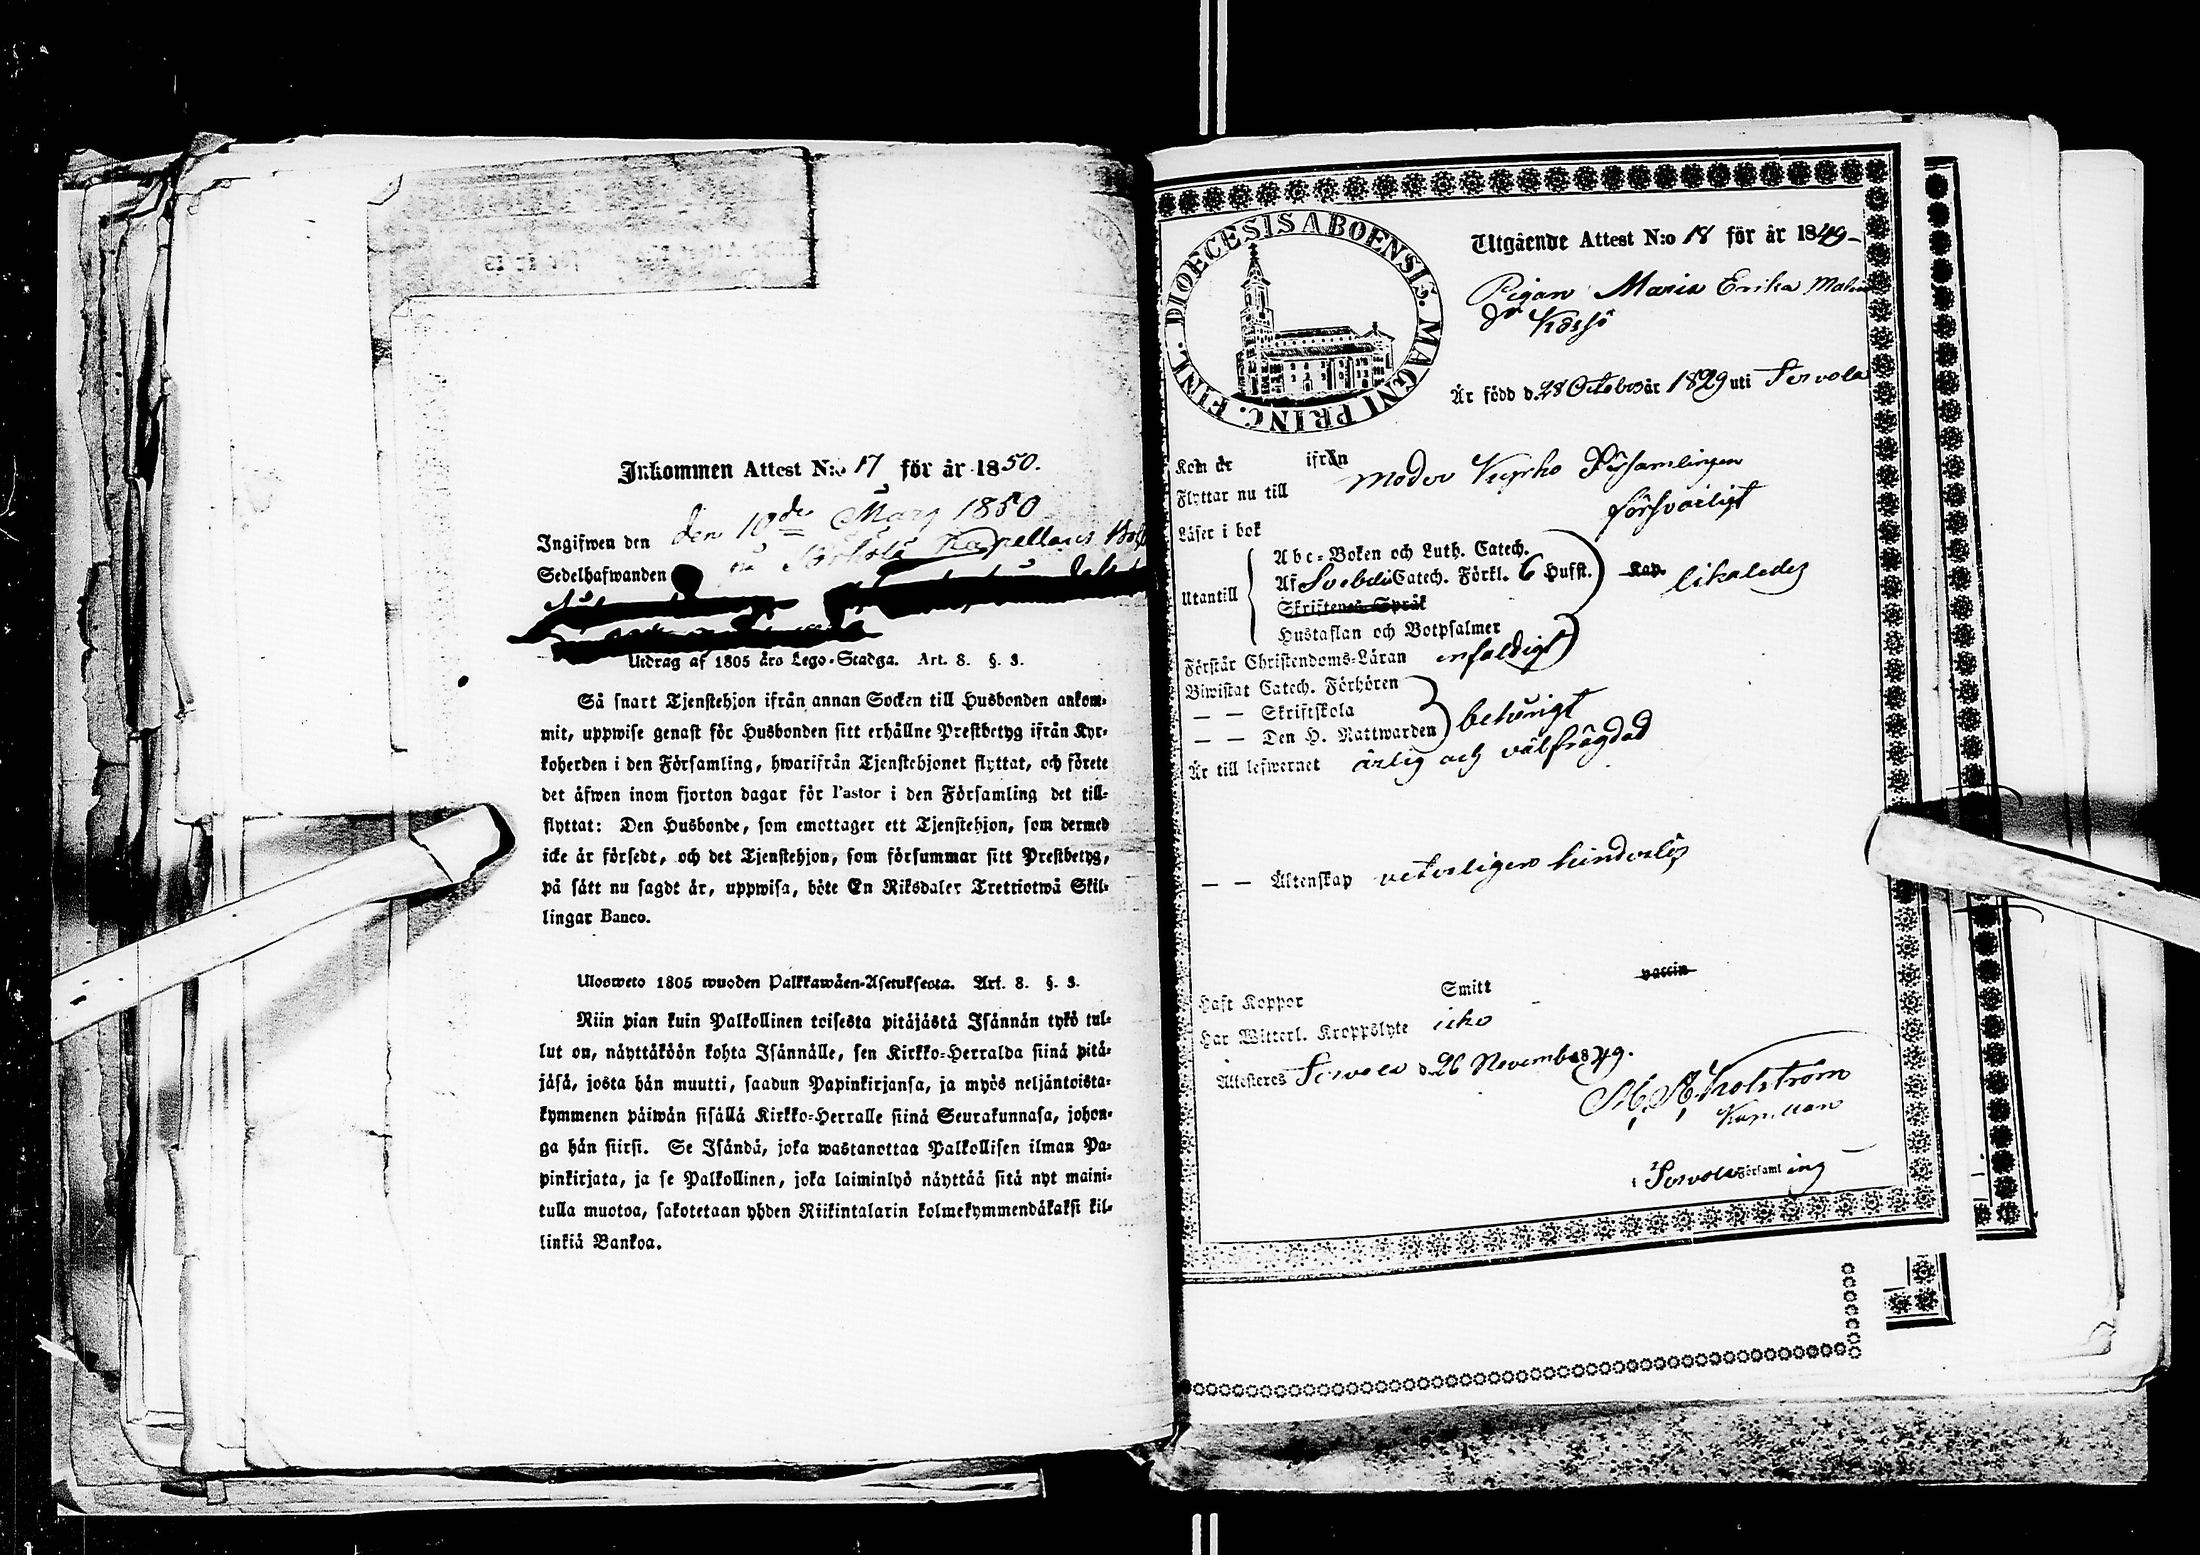 Inkommen Attest N:o 17 för år 1850.
Ingifwen den den 10de Mars 1850
Sedelhafwanden på Kapellans
Utdrag af 1805 års Lego-Stadga. Art. 8. §. 3.
Så snart Tjenstehjon ifrån annan Socken till Husbonden ankom-
mit, uppwise genast för Husbonden sitt erhållne Prestbetyg ifrån Kyr-
koherden i den Församling, hwarifrån Tjenstehjonet flyttat, och förete
det äfwen inom fjorton dagar för Pastor i den Församling det till-
flyttat: Den Husbonde, som emottager ett Tjenstehjon, som dermed
icke är försedt, och det Tjenstehjon, som försummar sitt Prestbetyg,
på sätt nu sagdt är, uppwisa, böte En Riksdaler Trettiotwå Skil-
lingar Banco.
Ulosweto 1805 wuoden Palkkawäen-Asetuksesta. Art. 8. §. 3.
Niin pian kuin Palkollinen toisesta pitäjästä Isännän tykö tul-
lut on, näyttäköön kohta Isännälle, sen Kirkko-Herralda siinä pitä-
jäsä, josta hän muutti, saadun Papinkirjansa, ja myös neljäntoista-
kymmenen päiwän sisällä Kirkko-Herralle siinä Seurakunnasa, johon-
ga hän siirsi. Se Isändä, joka wastanottaa Palkollisen ilman Pa-
pinkirjata, ja se Palkollinen, joka laiminlyö näyttää sitä nyt maini-
tulla muotoa, sakotetaan yhden Riikintalarin kolmekymmendäkaksi kil-
linkiä Bankoa.
DIOECESIS ABOENSIS. MAGNI PRINC. FINL.
Utgående Attest N:o 18 för år 1849
Pigan Maria Erika
dr
Är född d. 28 October år 1829 uti Servola
Kom år ifrån
Flyttar nu till Moder Kyrko Församlingen
Läser i bok försvarligt
Utantill
Abc-Boken och Luth. Catech.
Af Svebeli Catech. Förkl. 6 Hufst. Kap. likaledes
Skriftenes Språk
Hustaflan och Botpsalmer
Förstår Christendoms-Läran enfaldigt
Biwistat Catech. Förhören
— — Skriftskola
— — Den H. Nattwarden behörigt
Är till lefwernet ärlig och välfrägdad
— — Äktenskap veterligen hinderlös
vaccin
Haft Koppor Smitt
Har Witterl. Kroppslyte icke
Attesteres Servola d. 26 November 1849.
Kapellan
i Servola Församling